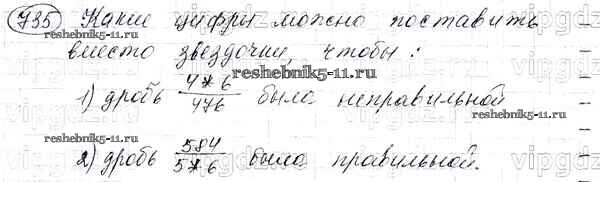 735 Какие цифры можно поставить
вместо звездочки, чтобы:
1) дробь 4*6/476 была неправильной
2) дробь 584/5*6 была правильной.
reshebnik5-11.ru
reshebnik5-11.ru
reshebnik5-11.ru
reshebnik5-11.ru
vipgdz
vipgdz
vipgdz